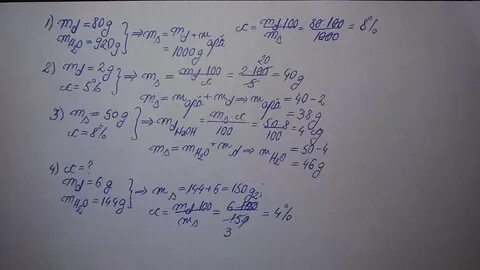 1) md = 80g
mH₂O = 920g } ⇒ ms = md + mapă
= 1000g
c = md·100/ms = 80·100/1000 = 8%
2) md = 2g
c = 5% } ⇒ ms = md·100/c = 2·100/5 = 40g
20
ms = mapă + md ⇒ mapă = 40 - 2
= 38g
3) ms = 50g
c = 8% } ⇒ mdNaOH = ms·c/100 = 50·8/100 = 4g
ms = mH₂O + md ⇒ mH₂O = 50 - 4
= 46g
4) c = ?
md = 6g
mH₂O = 144g } ⇒ ms = 144 + 6 = 150g
c = md·100/ms = 6·100/150 = 4%
3